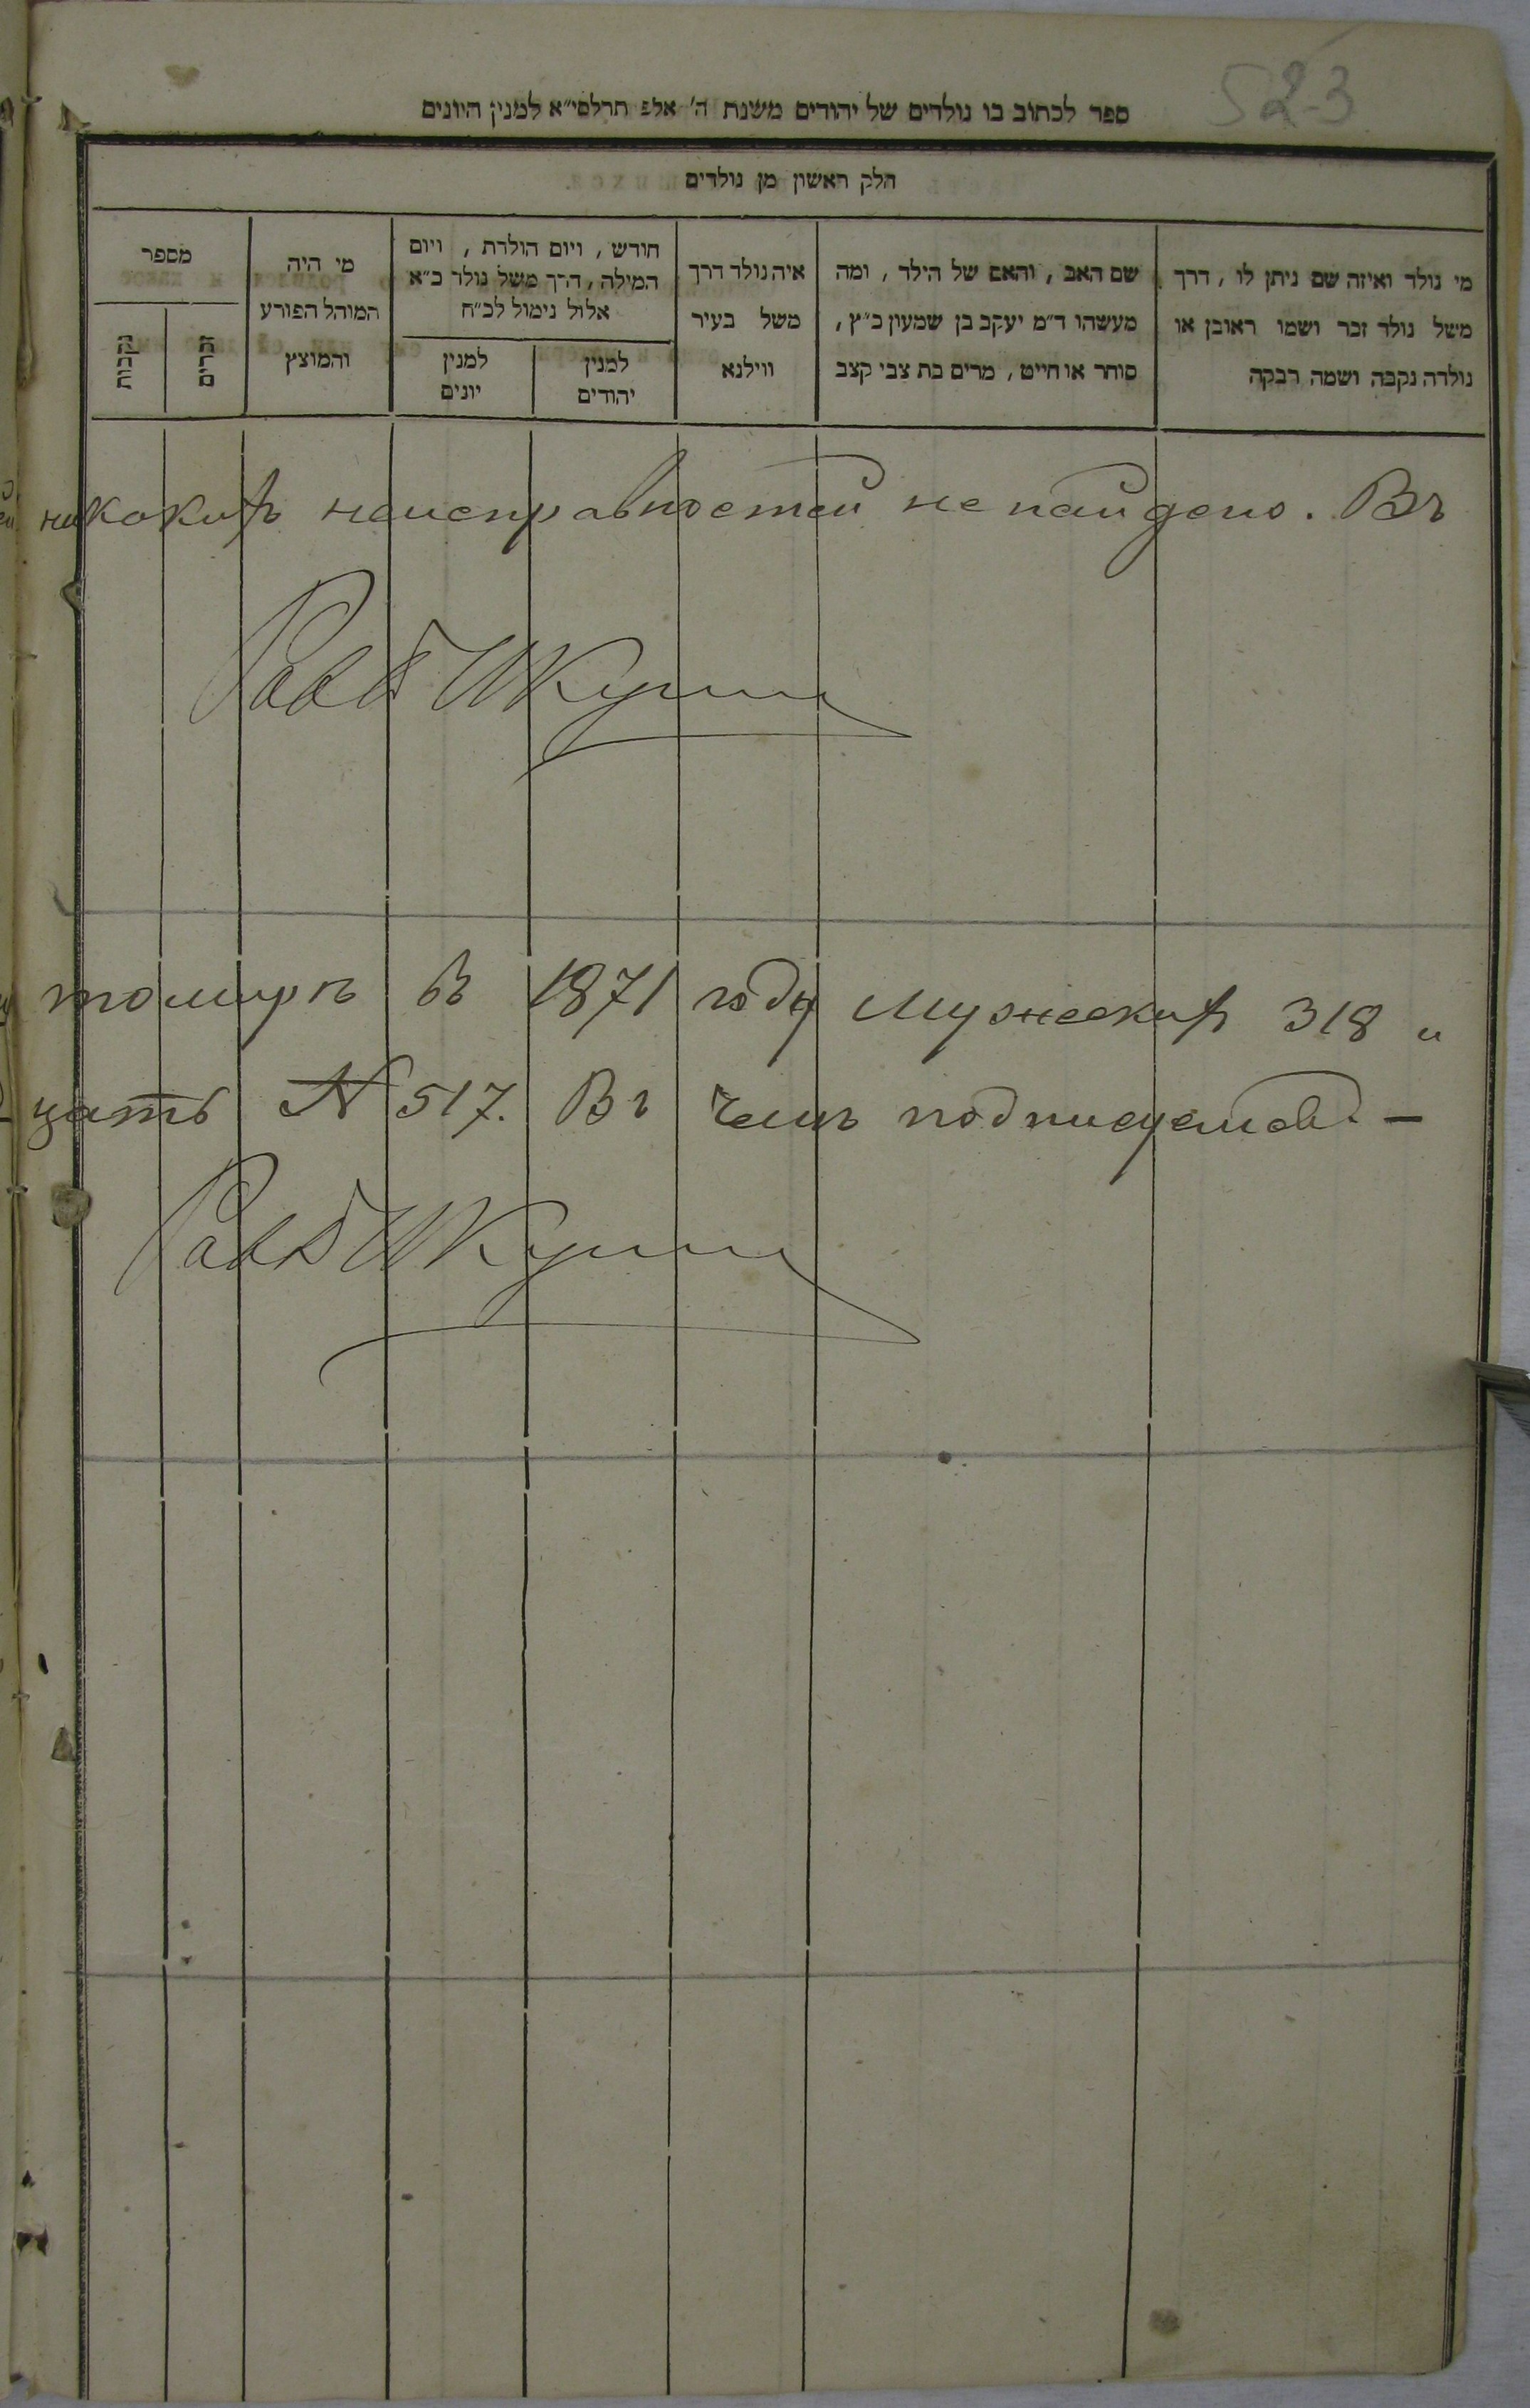 523
ספר לכתוב בו נולדים של יהודים משנת ה' אלפ תרלסי״א למנין היונים
חלק ראשון מן נולדים
מי נולד ואיזה שם ניתן לו, דרך
משל נולד זכר ושמו ראובן או
נולדה נקבה ושמה רבקה
שם האב, והאם של הילד, ומה
מעשהו ד״מ יעקב בן שמעון כ״ץ,
סוחר או חייט, מרים בת צבי קצב
איה נולד דרך
משל בעיר
ווילנא
חודש, ויום הולדת, ויום
המילה, דרך משל נולד כ״א
אלול נימול לכ״ח
למנין
יהודים
למנין
יונים
מי היה
המוהל הפורע
והמוצץ
מספר
זכרים
נקבות
никакихъ неисправностей не найдено. Въ
Равв Шкурин
томиръ въ 1871 году Мужескихъ 318 и
цать № 517. Въ чемъ подписуемъ. —
Равв Шкурин